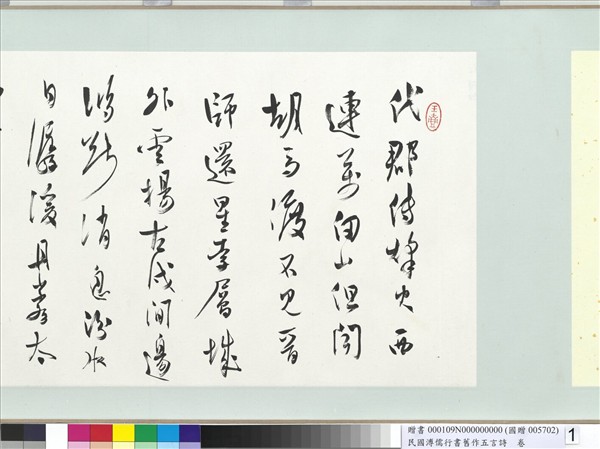 代郡傳烽火西
連萬山但聞
胡馬渡不見晉
師還星孛層城
外雲揚古戍間邊
鴻斷消息汾水
日潺湲丹太
贈書 000109N000000000 (國贈 005702)
民國溥儒行書舊作五言詩 卷
1